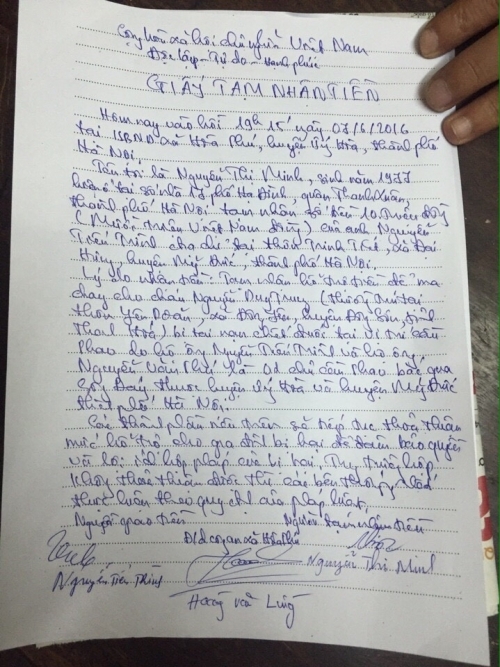 Cộng hòa xã hội chủ nghĩa Việt Nam
Độc lập - Tự do - Hạnh phúc
GIẤY TẠM NHẬN TIỀN
Hôm nay vào hồi 19h 15' ngày 07/6/2016
tại UBND xã Hòa Phú, huyện Ứng Hòa, thành phố
Hà Nội.
Tên tôi là Nguyễn Thị Minh, sinh năm 1977
hiện ở tại số nhà phố Hạ Đình, quận Thanh Xuân,
thành phố Hà Nội tạm nhận số tiền 10 triệu đồng
(Mười triệu Việt Nam đồng) của anh Nguyễn
Tiến Trình cho ở tại thôn Trinh Tiết, xã Đại
Hưng, huyện Mỹ Đức, thành phố Hà Nội.
Lý do nhận tiền: Tạm nhận hỗ trợ tiền để ma
chay cho cháu Nguyễn Duy Trung (thôn
xã huyện Đông Sơn, tỉnh
Thanh Hóa) bị tai nạn chết đuối tại vị trí cầu
Phao do hộ ông Nguyễn Tiến Trình và hộ ông
Nguyễn Văn Phú là chủ cầu Phao bắc qua
Sông Đáy, thuộc huyện Ứng Hòa và huyện Mỹ Đức
thành phố Hà Nội.
Các thành phần nêu trên sẽ tiếp tục thỏa thuận
mức hỗ trợ cho gia đình bị hại để đảm bảo quyền
và lợi ích hợp pháp của bị hại. Trường hợp
không thỏa thuận được thì các bên thống nhất
thực hiện theo quy định của pháp luật.
Người giao tiền Đ/d công an xã Hòa Phú Người tạm nhận tiền
Nguyễn Tiến Trình Nguyễn Thị Minh
Hoàng Văn